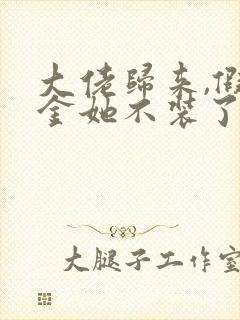 大佬歸来,假
金她不装了
大腿子工作室